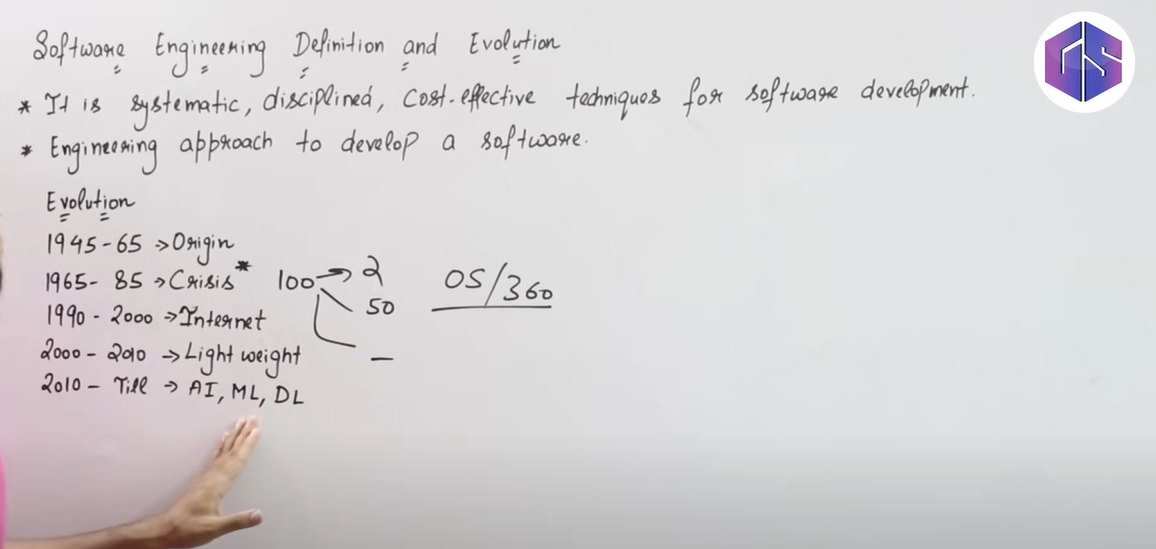 Software Engineering Definition and Evolution
* It is systematic, disciplined, cost-effective techniques for software development.
* Engineering approach to develop a software.
Evolution
1945-65 → Origin
1965- 85 → Crisis*
100 → 2
50
—
OS/360
1990 - 2000 → Internet
2000 - 2010 → Light weight
2010 - Till → AI, ML, DL
GS